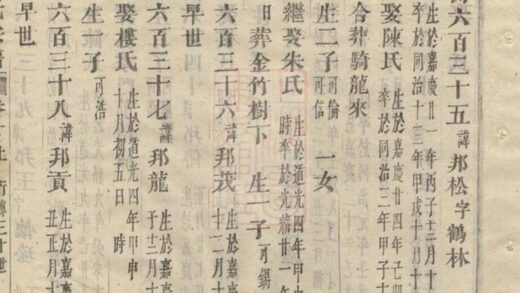 六百三十五 諱邦松字鶴林
生於嘉慶廿一年丙子三月十
卒於同治十三年甲戌十月十
娶陳氏 生於嘉慶廿四年己卯
卒於同治三年甲子十
合葬騎龍來
生二子 可倫 可信 一女
繼娶朱氏 生於道光四年甲申
時卒於光緒廿一年
葬金竹樹下 生一子 可錫
六百三十六 諱邦茂 生於嘉慶
十二月十
早世
六百三十七 諱邦龍 生於嘉慶
于十二月十
娶樓氏 生於道光四年甲申
十月初五日 時
生一子 可浩
六百三十八 諱邦貢 生於嘉慶
丑正月十
早世